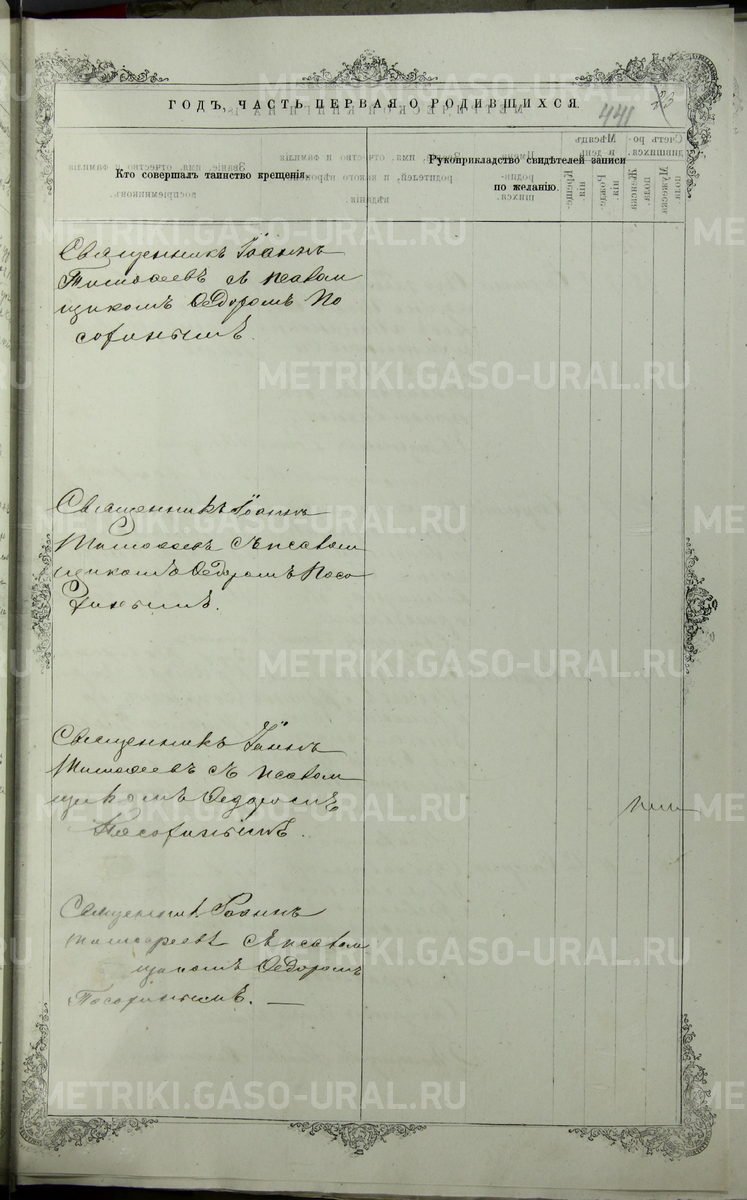 ГОДЪ, ЧАСТЬ ПЕРВАЯ О РОДИВШИХСЯ.
441
23
Кто совершалъ таинство крещенія.
Рукоприкладство свидѣтелей записи
по желанію.
Священникъ Іоаннъ
Тимофеевъ съ псалом
щикомъ Ѳедоромъ По
Священникъ Іоаннъ
Тимофеевъ съ псалом
щикомъ Ѳедоромъ
Священникъ Іоаннъ
Тимофеевъ съ псалом
щикомъ Ѳедоромъ
Священникъ Іоаннъ
Тимофеевъ съ псалом
щикомъ Ѳедоромъ
METRIKI.GASO-URAL.RU